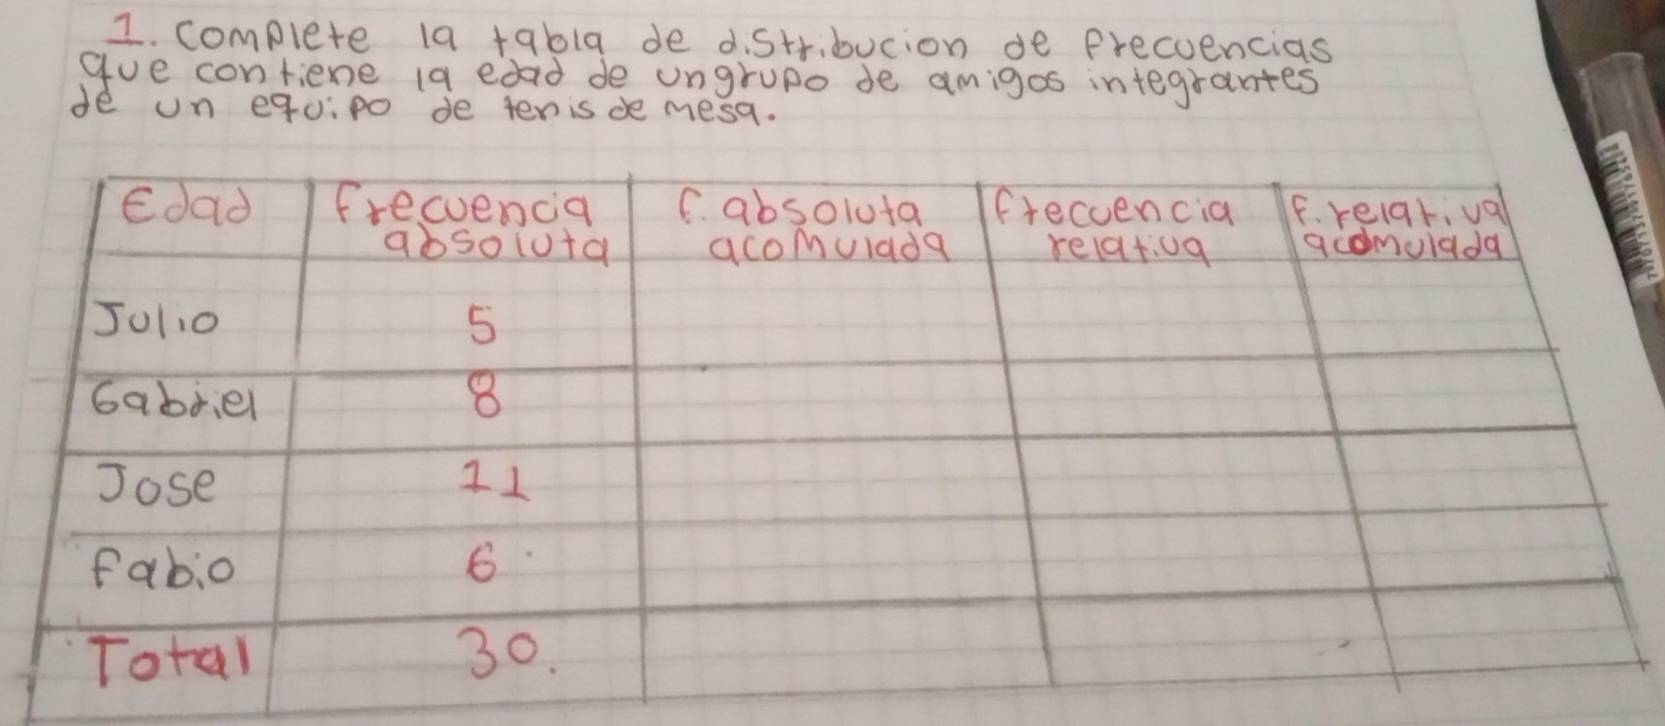 1. Complete la tabla de distribucion de frecuencias
que contiene la edad de un grupo de amigos integrantes
de un equipo de tenis de mesa.
Edad frecuencia absoluta f. absoluta acomulada frecuencia relativa f. relativa acomulada
Julio 5
Gabriel 8
Jose 11
Fabio 6
Total 30.